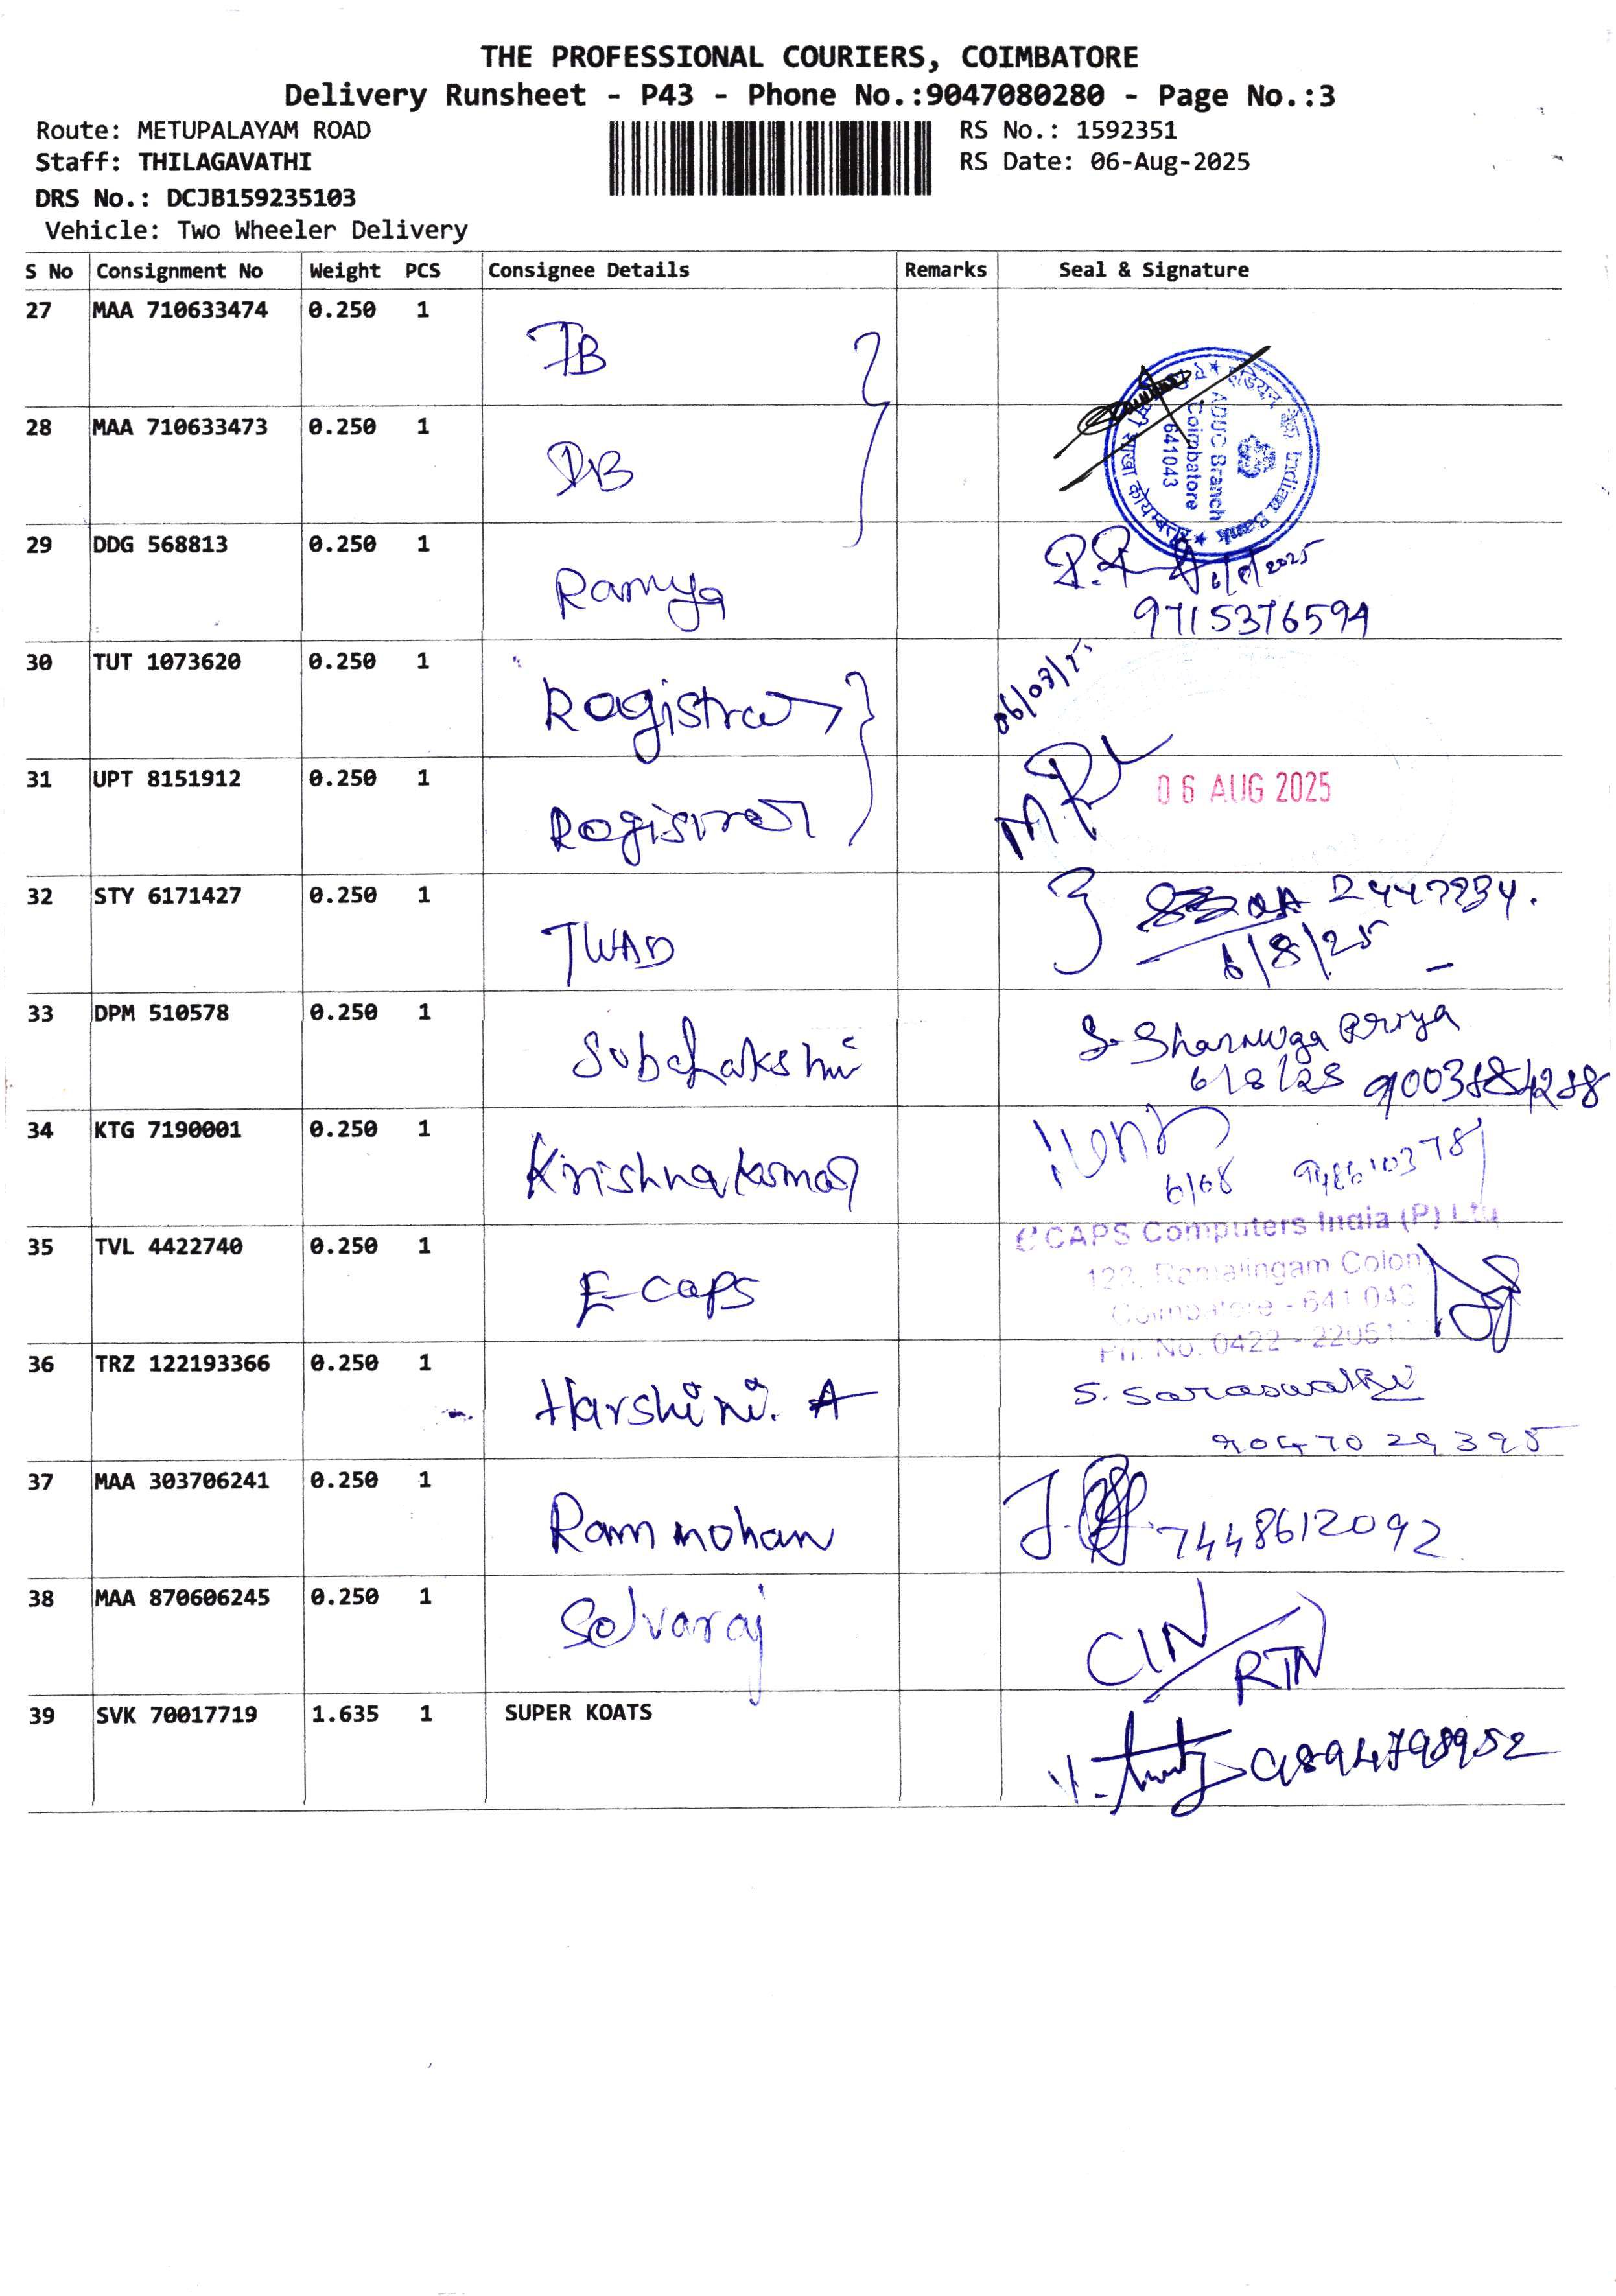 THE PROFESSIONAL COURIERS, COIMBATORE
Delivery Runsheet - P43 - Phone No.:9047080280 - Page No.:3
Route: METUPALAYAM ROAD
RS No.: 1592351
Staff: THILAGAVATHI
RS Date: 06-Aug-2025
DRS No.: DCJB159235103
Vehicle: Two Wheeler Delivery
S No Consignment No Weight PCS Consignee Details Remarks Seal & Signature
27 MAA 710633474 0.250 1 IB
28 MAA 710633473 0.250 1 IB
इंडियन बैंक Indian Bank
ADUC Branch
Coimbatore
641043
शाखा
29 DDG 568813 0.250 1 Ramya
6/8/2025
9715376594
30 TUT 1073620 0.250 1 Registrar
31 UPT 8151912 0.250 1 Registrar
06 AUG 2025
32 STY 6171427 0.250 1 TWAD
2447934.
6/8/25
33 DPM 510578 0.250 1 Subalakshmi
S. Shanmuga Priya
6/8/25
34 KTG 7190001 0.250 1 Krishnakumar
6/08
35 TVL 4422740 0.250 1 E-caps
eCAPS Computers India (P) Ltd
123, Ramalingam Colony
Coimbatore - 641 043
Ph. No. 0422 - 22051
36 TRZ 122193366 0.250 1 Harshini. A
S. Saraswathi
9047029395
37 MAA 303706241 0.250 1 Ram mohan
7448612092
38 MAA 870606245 0.250 1 Selvaraj
CIN/RTN
39 SVK 70017719 1.635 1 SUPER KOATS
9894798952